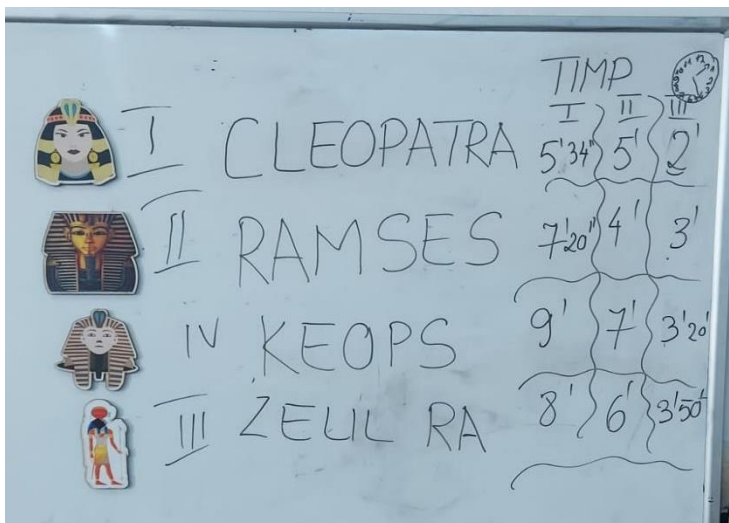 TIMP
I II III
I CLEOPATRA 5'34" 5' 2'
II RAMSES 7'20" 4' 3'
IV KEOPS 9' 7' 3'20'
III ZEUL RA 8' 6' 3'50"